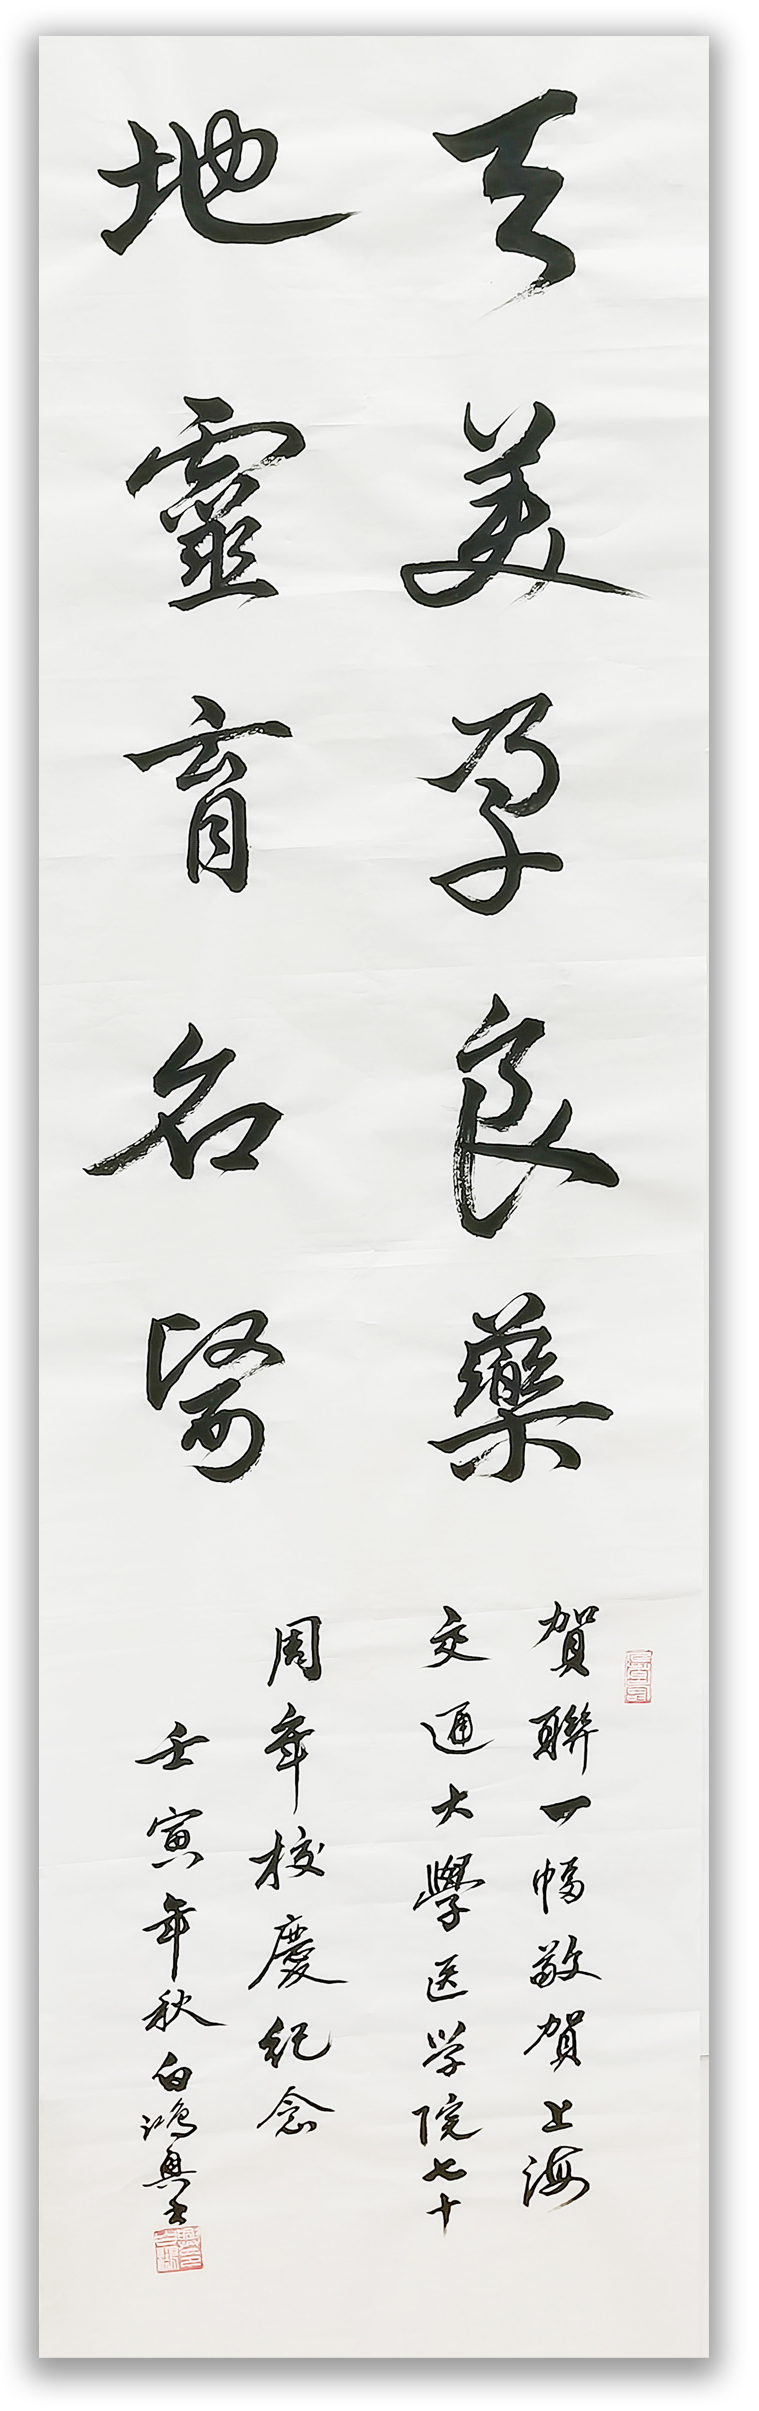 天美孕良藥
地靈育名醫
賀聯一幅敬賀上海
交通大學医学院七十
周年校慶紀念
壬寅年秋白鴻興书